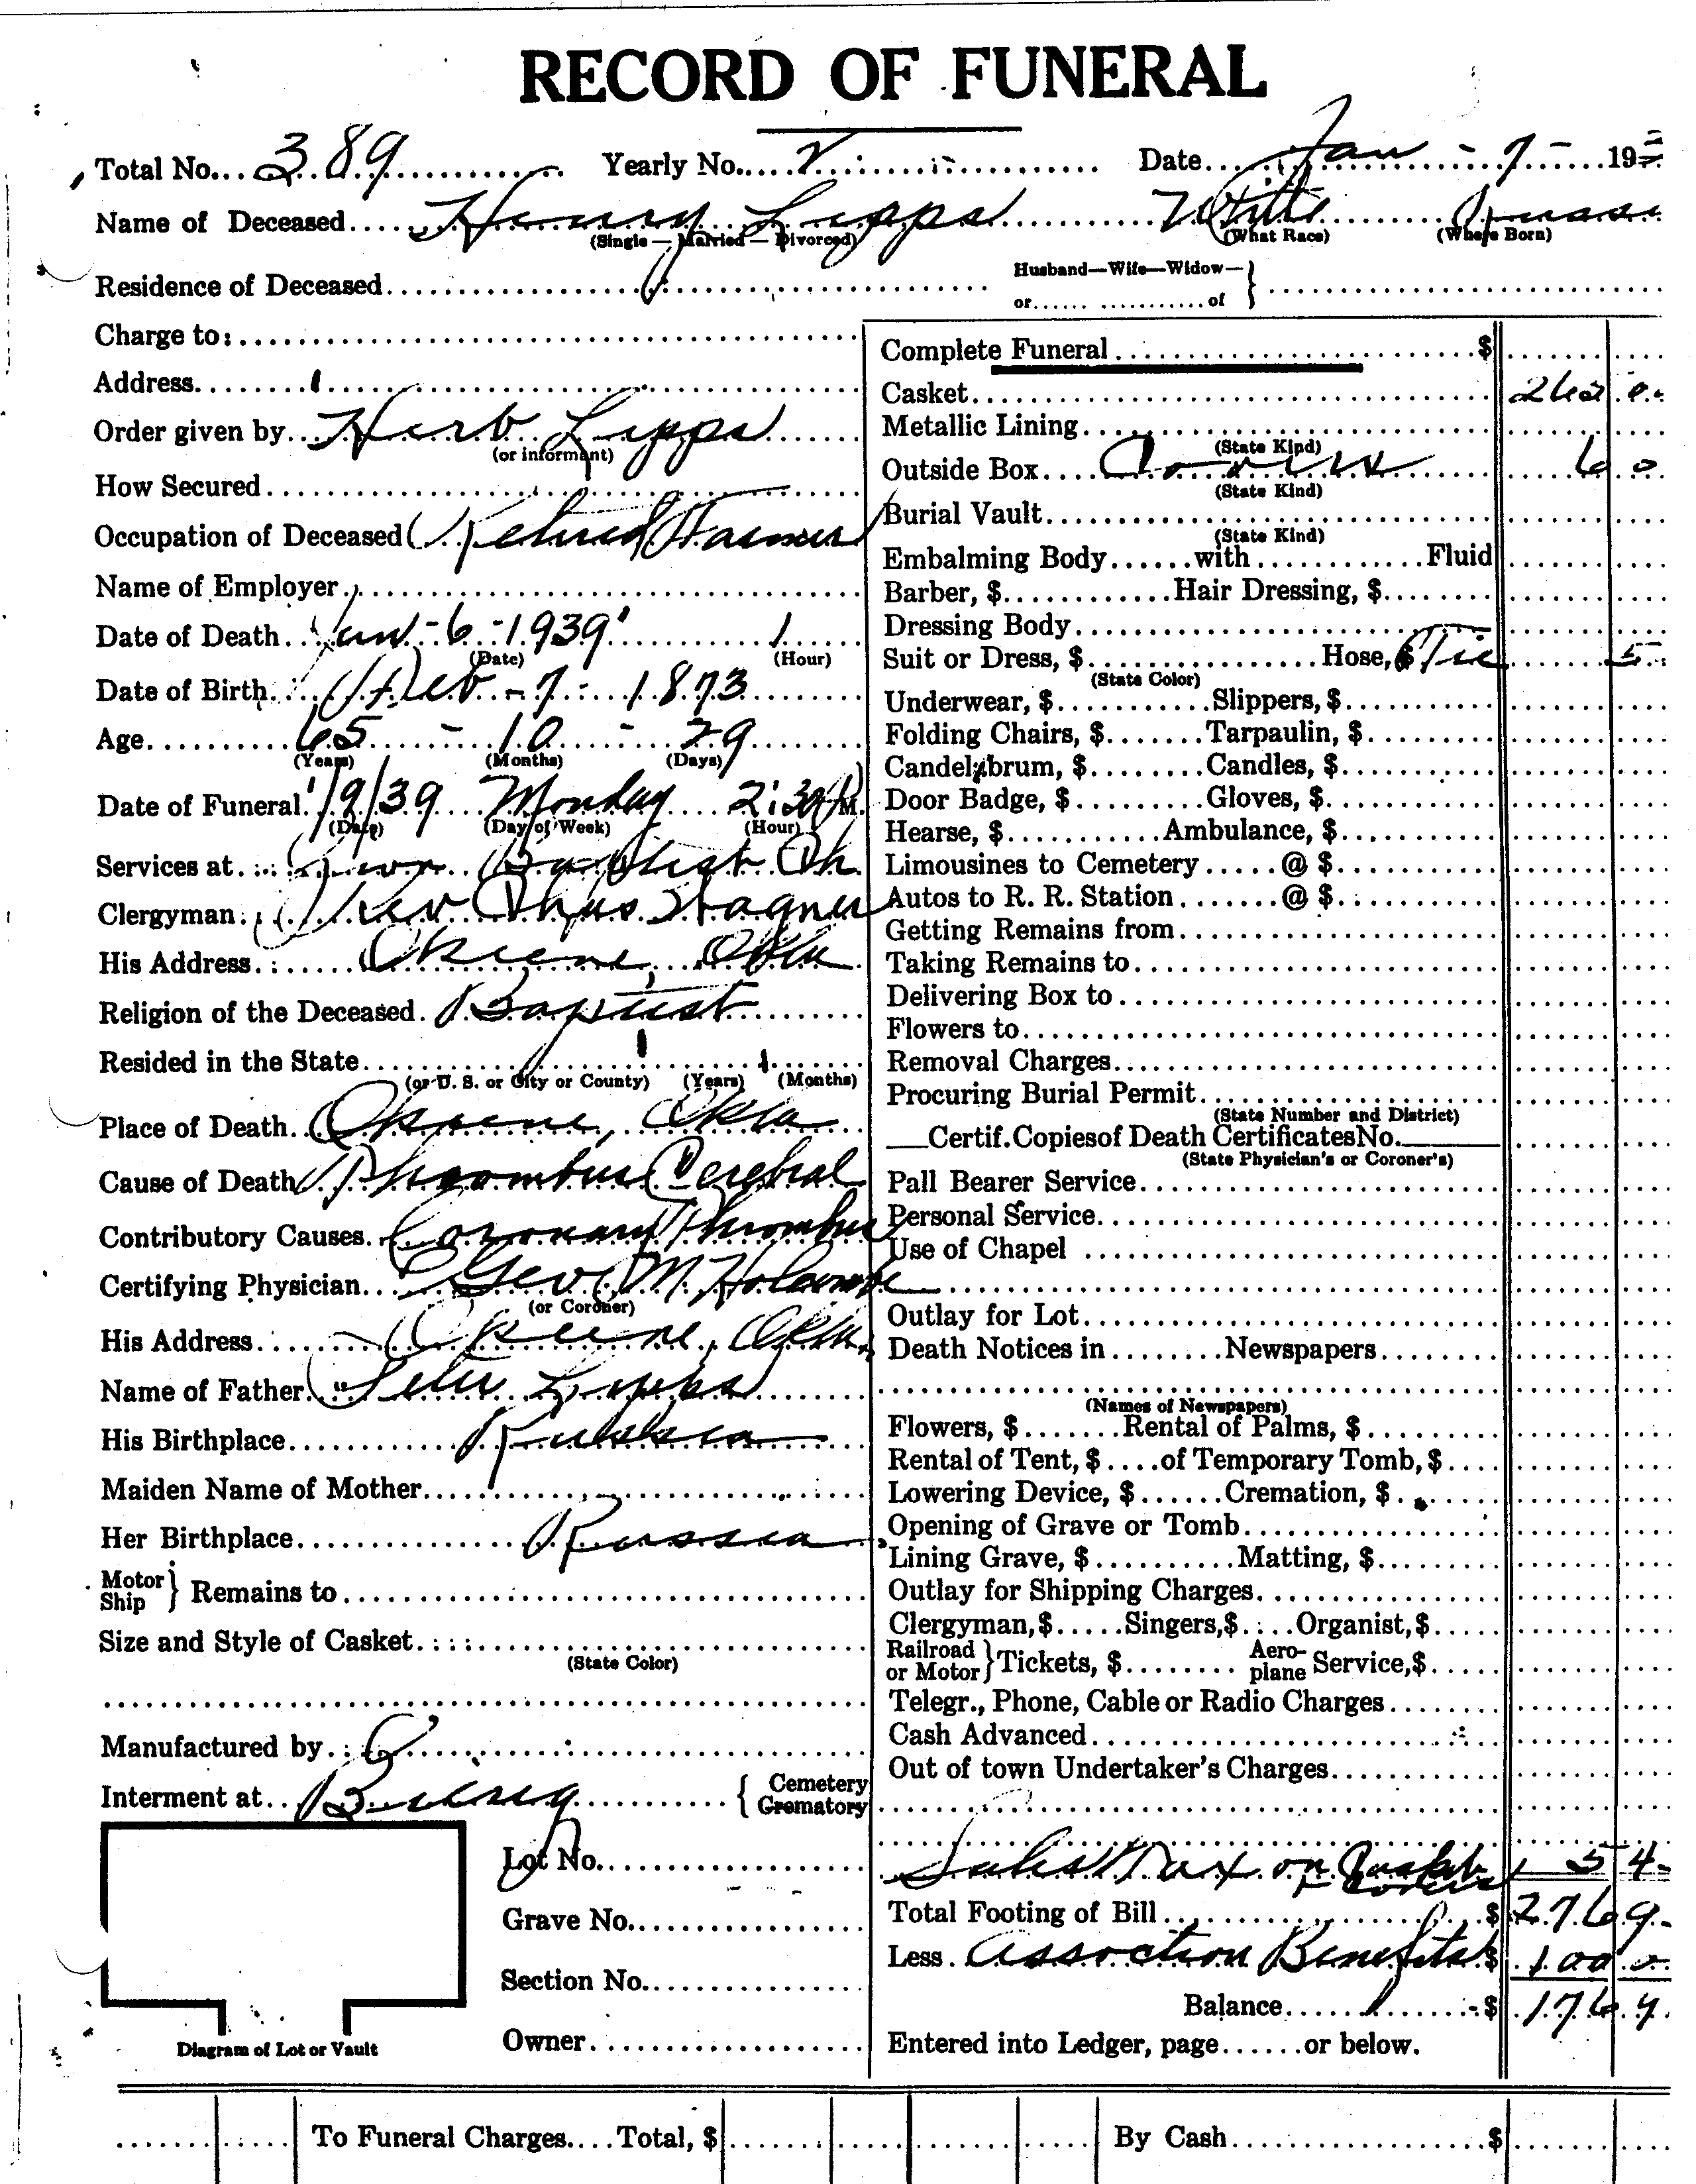 RECORD OF FUNERAL
Total No. 389 Yearly No. 2 Date Jan - 7 - 19
Name of Deceased Henry Lipps White
(Single — Married — Divorced) (What Race) (Where Born)
Residence of Deceased Husband—Wife—Widow— or of
Charge to:
Address
Order given by Herb Lipps
(or informant)
How Secured
Occupation of Deceased Retired Farmer
Name of Employer
Date of Death Jan - 6 - 1939
(Date) (Hour)
Date of Birth Feb - 7 - 1873
Age 65 - 10 - 29
(Years) (Months) (Days)
Date of Funeral 1/9/39 Monday 2:30 P.M.
(Date) (Day of Week) (Hour)
Services at Zion Baptist Ch
Clergyman Rev Chas Wagner
His Address Okeene, Okla
Religion of the Deceased Baptist
Resided in the State
(or U. S. or City or County) (Years) (Months)
Place of Death Okeene, Okla
Cause of Death Thrombus Cerebral
Contributory Causes Coronary Thrombus
Certifying Physician Geo. M. Holcombe
(or Coroner)
His Address Okeene, Okla
Name of Father Peter Lipps
His Birthplace Russia
Maiden Name of Mother
Her Birthplace Russia
Motor Ship } Remains to
Size and Style of Casket
(State Color)
Manufactured by
Interment at { Cemetery Crematory
Lot No.
Grave No.
Section No.
Owner
Diagram of Lot or Vault
Complete Funeral $
Casket
Metallic Lining
(State Kind)
Outside Box 6 0
(State Kind)
Burial Vault
(State Kind)
Embalming Body with Fluid
Barber, $ Hair Dressing, $
Dressing Body
Suit or Dress, $ Hose, $ Tie 5
(State Color)
Underwear, $ Slippers, $
Folding Chairs, $ Tarpaulin, $
Candelabrum, $ Candles, $
Door Badge, $ Gloves, $
Hearse, $ Ambulance, $
Limousines to Cemetery @ $
Autos to R. R. Station @ $
Getting Remains from
Taking Remains to
Delivering Box to
Flowers to
Removal Charges
Procuring Burial Permit
(State Number and District)
Certif. Copies of Death Certificates No.
(State Physician's or Coroner's)
Pall Bearer Service
Personal Service
Use of Chapel
Outlay for Lot
Death Notices in Newspapers
(Names of Newspapers)
Flowers, $ Rental of Palms, $
Rental of Tent, $ of Temporary Tomb, $
Lowering Device, $ Cremation, $
Opening of Grave or Tomb
Lining Grave, $ Matting, $
Outlay for Shipping Charges
Clergyman, $ Singers, $ Organist, $
Railroad or Motor } Tickets, $ Aero-plane Service, $
Telegr., Phone, Cable or Radio Charges
Cash Advanced
Out of town Undertaker's Charges
Sales Tax on Casket 5 4
Total Footing of Bill $ 276 9
Less Assoction Benefits $ 100 0
Balance $ 176 9
Entered into Ledger, page or below.
To Funeral Charges Total, $ By Cash $